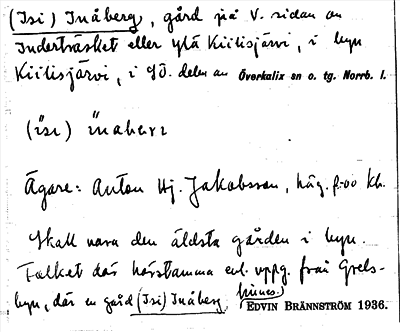 (Isi) Inåberg, gård på V. sidan av
Inderträsket eller ytä Kiitisjärvi, i byn
Kiitisjärvi, i SO. delen av Överkalix sn o. tg. Norrb. l.
Ägare: Anton Hj. Jakobsson,
Skall vara den äldsta gården i byn.
Folket där härstamma enl. uppg. från Grels-
byn, där en gård (Isi) Inåberg finnes.)
EDVIN BRÄNNSTRÖM 1936.